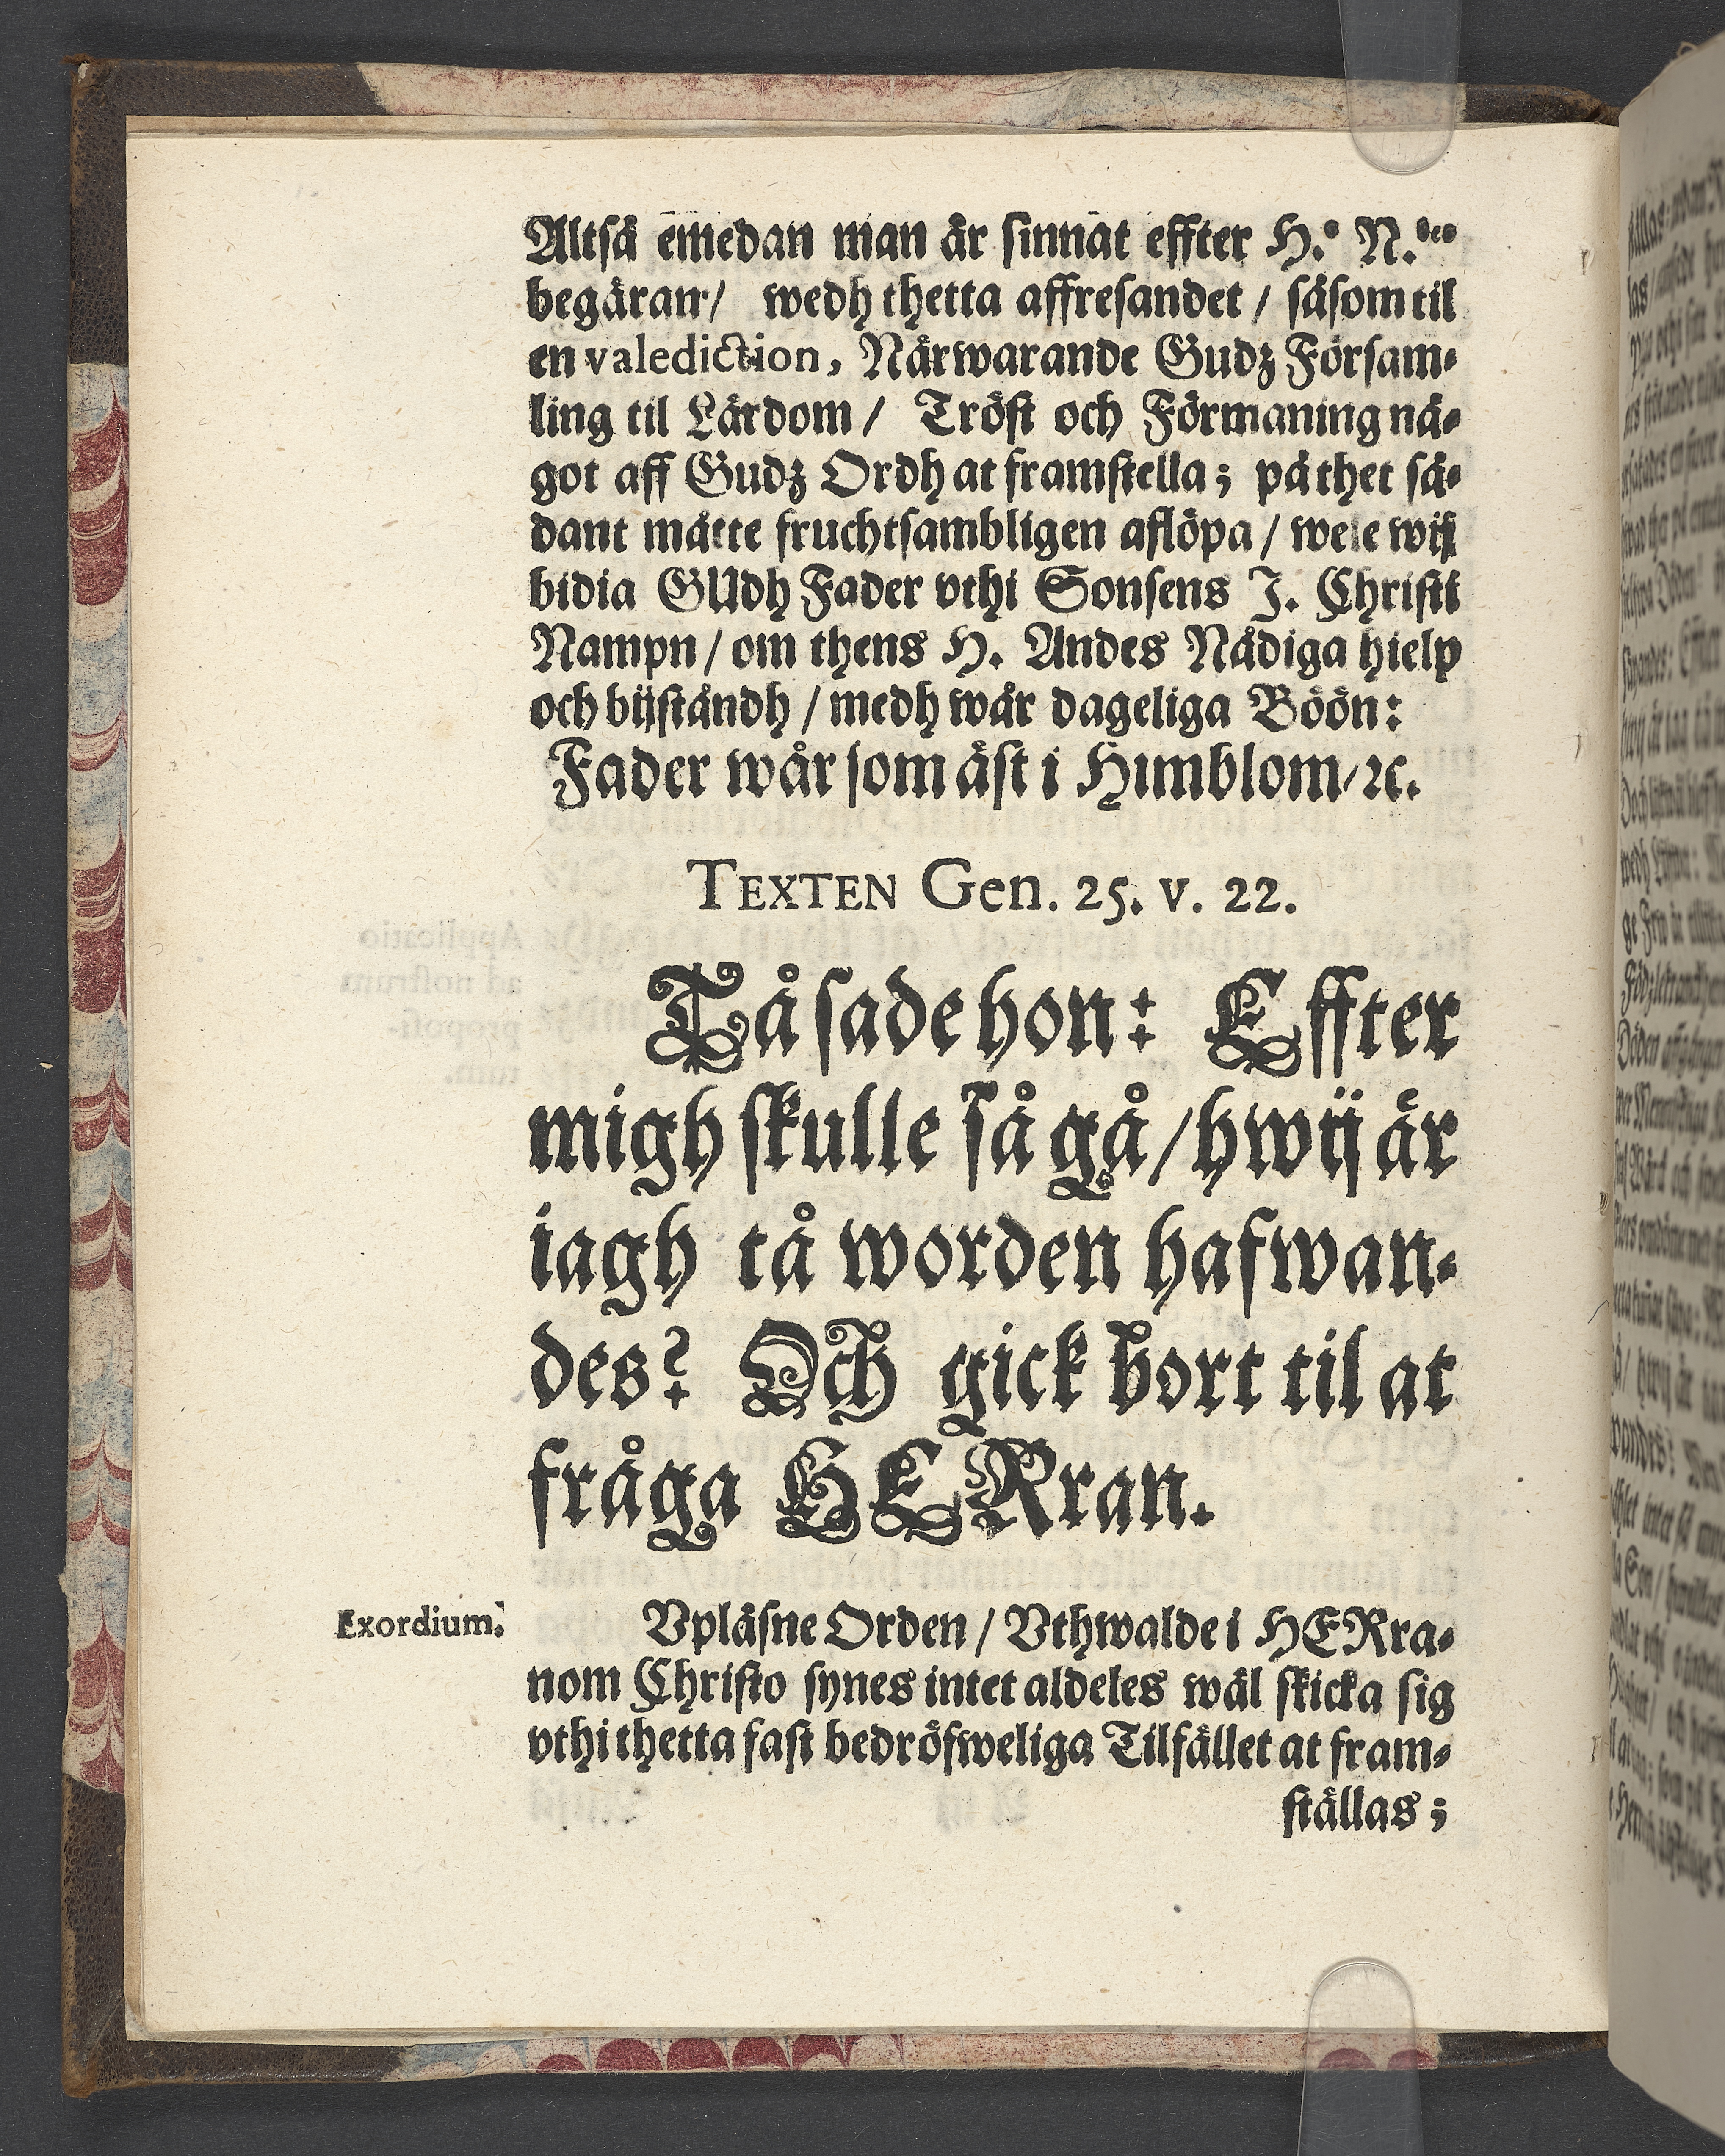 Altså emedan man är sinnat effter H.
begäran / wedh thetta affresandet / såsom til
en valediction, Närwarande Gudz Försam-
ling til Lärdom / Tröst och Förmaning nå-
got aff Gudz Ordh at framstella; på thet så-
dant måtte fruchtsambligen aflöpa / wele wij
bidia GUdh Fader vthi Sonsens J. Christi
Nampn / om thens H. Andes Nådiga hielp
och bijståndh / medh wår dageliga Böön:
Fader wår som äst i Himblom / ꝛc.
TEXTEN Gen. 25. v. 22.
Tå sade hon: Effter
migh skulle så gå / hwij är
iagh tå worden hafwan-
des? Och gick bort til at
fråga HERran.
Exordium.
Vpläsne Orden / Vthwalde i HERra-
nom Christo synes intet aldeles wäl skicka sig
vthi thetta fast bedröfweliga Tilfället at fram-
ställas;